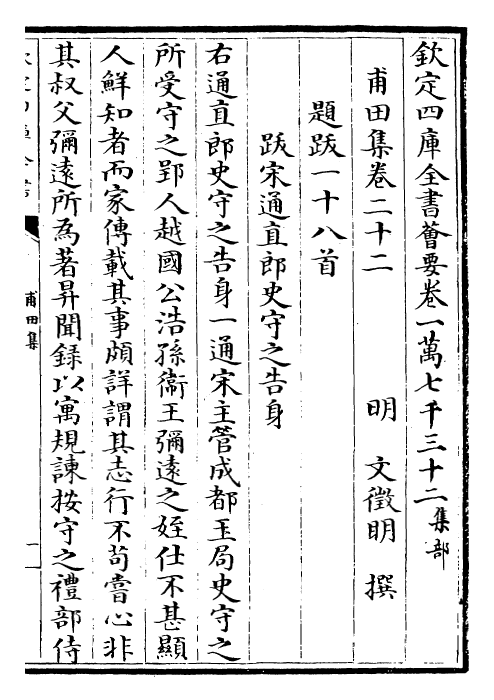 欽定四庫全書薈要卷一萬七千三十二集部
甫田集卷二十二
明 文徵明 撰
題跋一十八首
跋宋通直郎史守之告身
右通直郎史守之告身一通宋主管成都玉局史守之
所受守之鄞人越國公浩孫衞王彌遠之姪仕不甚顯
人鮮知者而家傳載其事頗詳謂其志行不苟嘗心非
其叔父彌遠所為著昇聞錄以寓規諫按守之禮部侍
甫田集
一